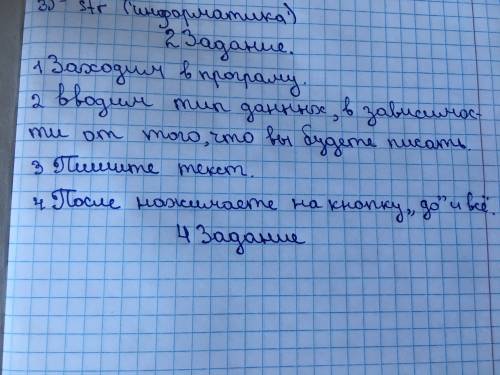 3) str ('информатика')
2 Задание.
1 Заходим в програму.
2 вводим тип данных, в зависимос-
ти от того, что вы будете писать.
3 Пишите текст.
4 После нажимаете на кнопку „до" и всё.
4 Задание